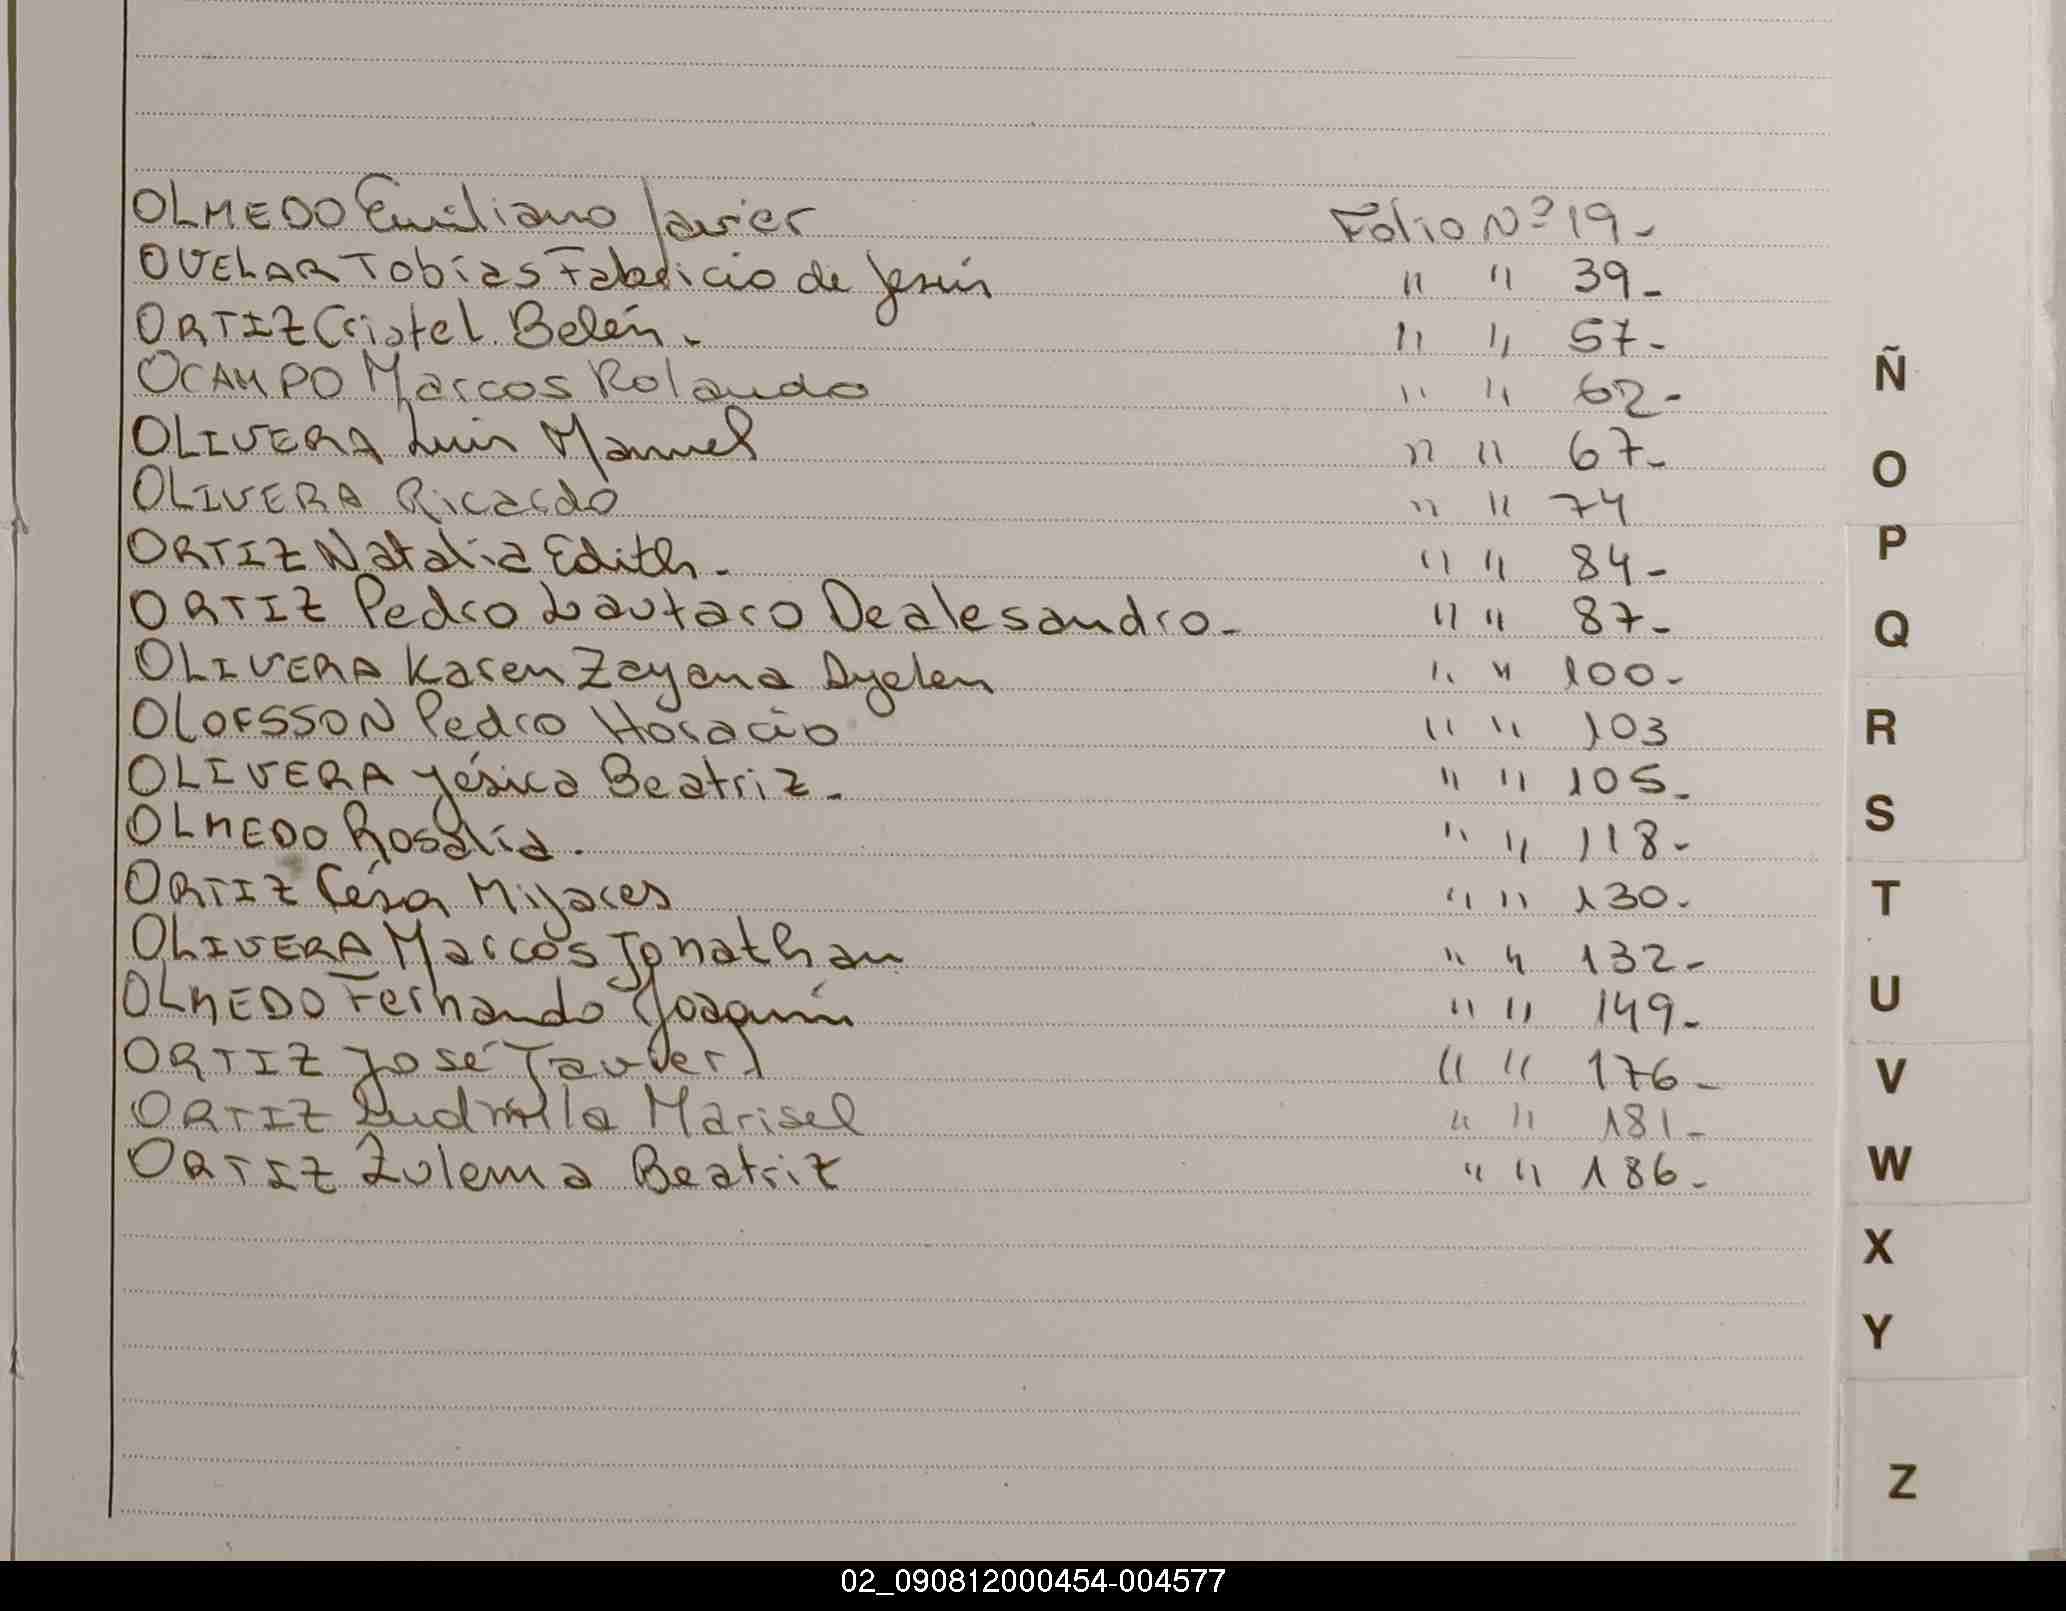 OLMEDO Emiliano Javier Folio Nº 19-
OVELAR Tobías Fabricio de Jesús " " 39-
ORTIZ Cristel Belén. " " 57-
OCAMPO Marcos Rolando " " 62-
OLIVERA Luis Manuel " " 67-
OLIVERA Ricardo " " 74
ORTIZ Natalia Edith- " " 84-
ORTIZ Pedro Lautaro Dealesandro- " " 87-
OLIVERA Karen Zayana Ayelen " " 100-
OLOFSSON Pedro Horacio " " 103
OLIVERA Yésica Beatriz- " " 105-
OLMEDO Rosalía. " " 118-
ORTIZ César Mijares " " 130-
OLIVERA Marcos Jonathan " " 132-
OLMEDO Fernando Joaquín " " 149-
ORTIZ José Javier " " 176-
ORTIZ Ludmila Marisel " " 181-
ORTIZ Zulema Beatriz " " 186-
Ñ
O
P
Q
R
S
T
U
V
W
X
Y
Z
02_090812000454-004577